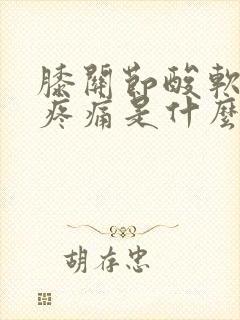 膝關節酸軟
疼痛是什麼
胡存忠